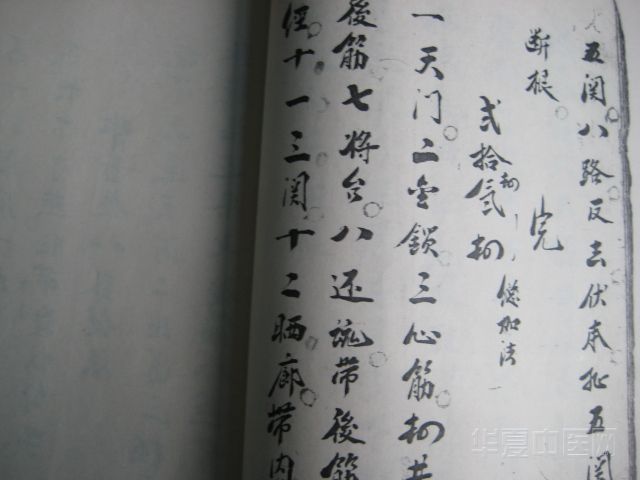 五関。八路反去伏五関
断根。完
弍拾氣
总加法
一天门。二金鎖。三心筋。
後筋。七将台。八还魂。带後筋
經。十一三関。十二晒廊。带内
华夏中医网